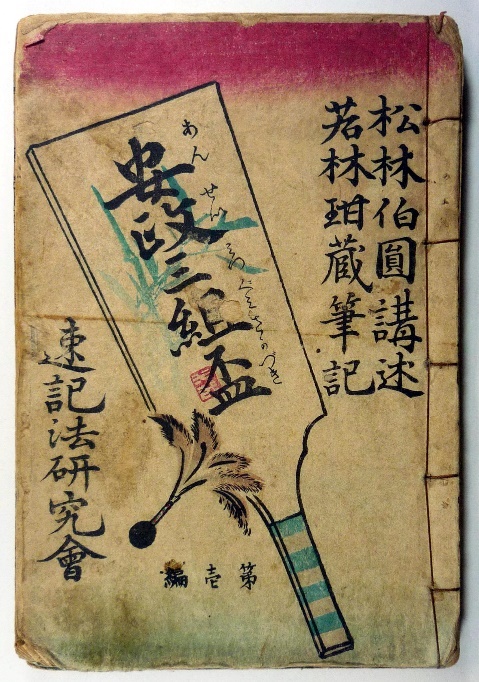 松林伯圓講述
若林玵蔵筆記
安政三組盃
あんせい みつぐみさかづき
速記法研究會
第壱編